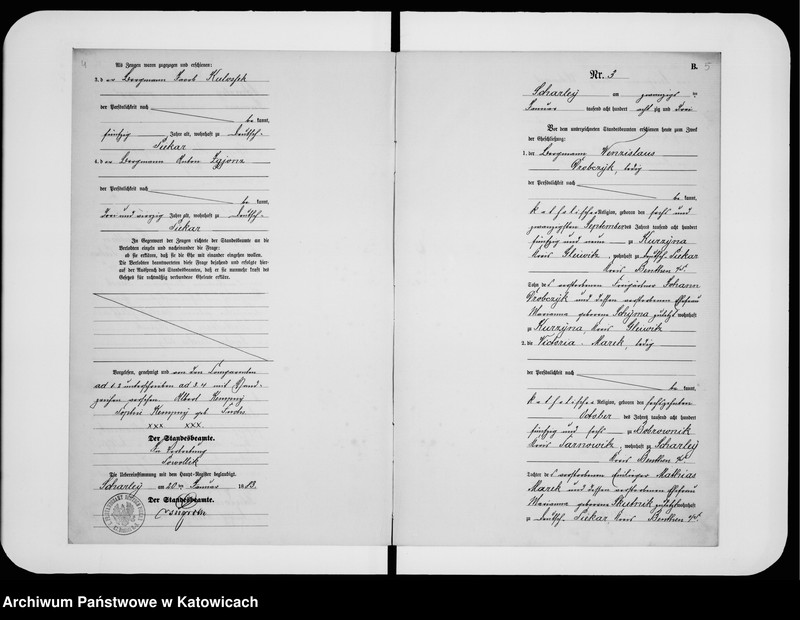 4
Als Zeugen waren zugezogen und erschienen:
3. der Bergmann Jacob
der Persönlichkeit nach
be kannt,
fünfzig Jahre alt, wohnhaft zu Deutsch-
Piekar
4. der Bergmann Anton
der Persönlichkeit nach
be kannt,
drei und vierzig Jahre alt, wohnhaft zu Deutsch-
Piekar
In Gegenwart der Zeugen richtete der Standesbeamte an die
Verlobten einzeln und nacheinander die Frage:
ob sie erklären, daß sie die Ehe mit einander eingehen wollen.
Die Verlobten beantworteten diese Frage bejahend und erfolgte hier-
auf der Ausspruch des Standesbeamten, daß er sie nunmehr kraft des
Gesetzes für rechtmäßig verbundene Eheleute erkläre.
Vorgelesen, genehmigt und von den Comparenten
ad 1. 2 unterschrieben ad 3. 4 mit Hand-
zeichen versehen. Albert Kempny
Sophie Kempny geb.
xxx xxx
Der Standesbeamte.
In Vertretung
Die Uebereinstimmung mit dem Haupt-Register beglaubigt.
Scharley am 20ten Januar 1883.
Der Standesbeamte.
B.
5
Nr. 3
Scharley am zwanzigsten
Januar tausend acht hundert achtzig und drei
Vor dem unterzeichneten Standesbeamten erschienen heute zum Zweck
der Eheschließung:
1. der Bergmann Wenzislaus
Grobczyk, ledig
der Persönlichkeit nach
be kannt,
katholischer Religion, geboren den sechs und
zwanzigsten September des Jahres tausend acht hundert
fünfzig und neun zu Kurzyna
Kreis Gleiwitz, wohnhaft zu Deutsch-Piekar
Kreis Beuthen O/S.
Sohn des verstorbenen Freigärtner Johann
Grobczyk und dessen verstorbenen Ehefrau
Marianna geborene Schyma zuletzt wohnhaft
zu Kurzyna, Kreis Gleiwitz
2. die Victoria Marek, ledig
der Persönlichkeit nach
be kannt,
katholischer Religion, geboren den sechszehnten
October des Jahres tausend acht hundert
fünfzig und sechs zu Bobrownik
Kreis Tarnowitz, wohnhaft zu Scharley
Kreis Beuthen O/S.
Tochter des verstorbenen Einlieger Mathias
Marek und dessen verstorbenen Ehefrau
Marianna geborene Skutnik zuletzt wohnhaft
zu Deutsch-Piekar Kreis Beuthen O/S.
Archiwum Państwowe w Katowicach